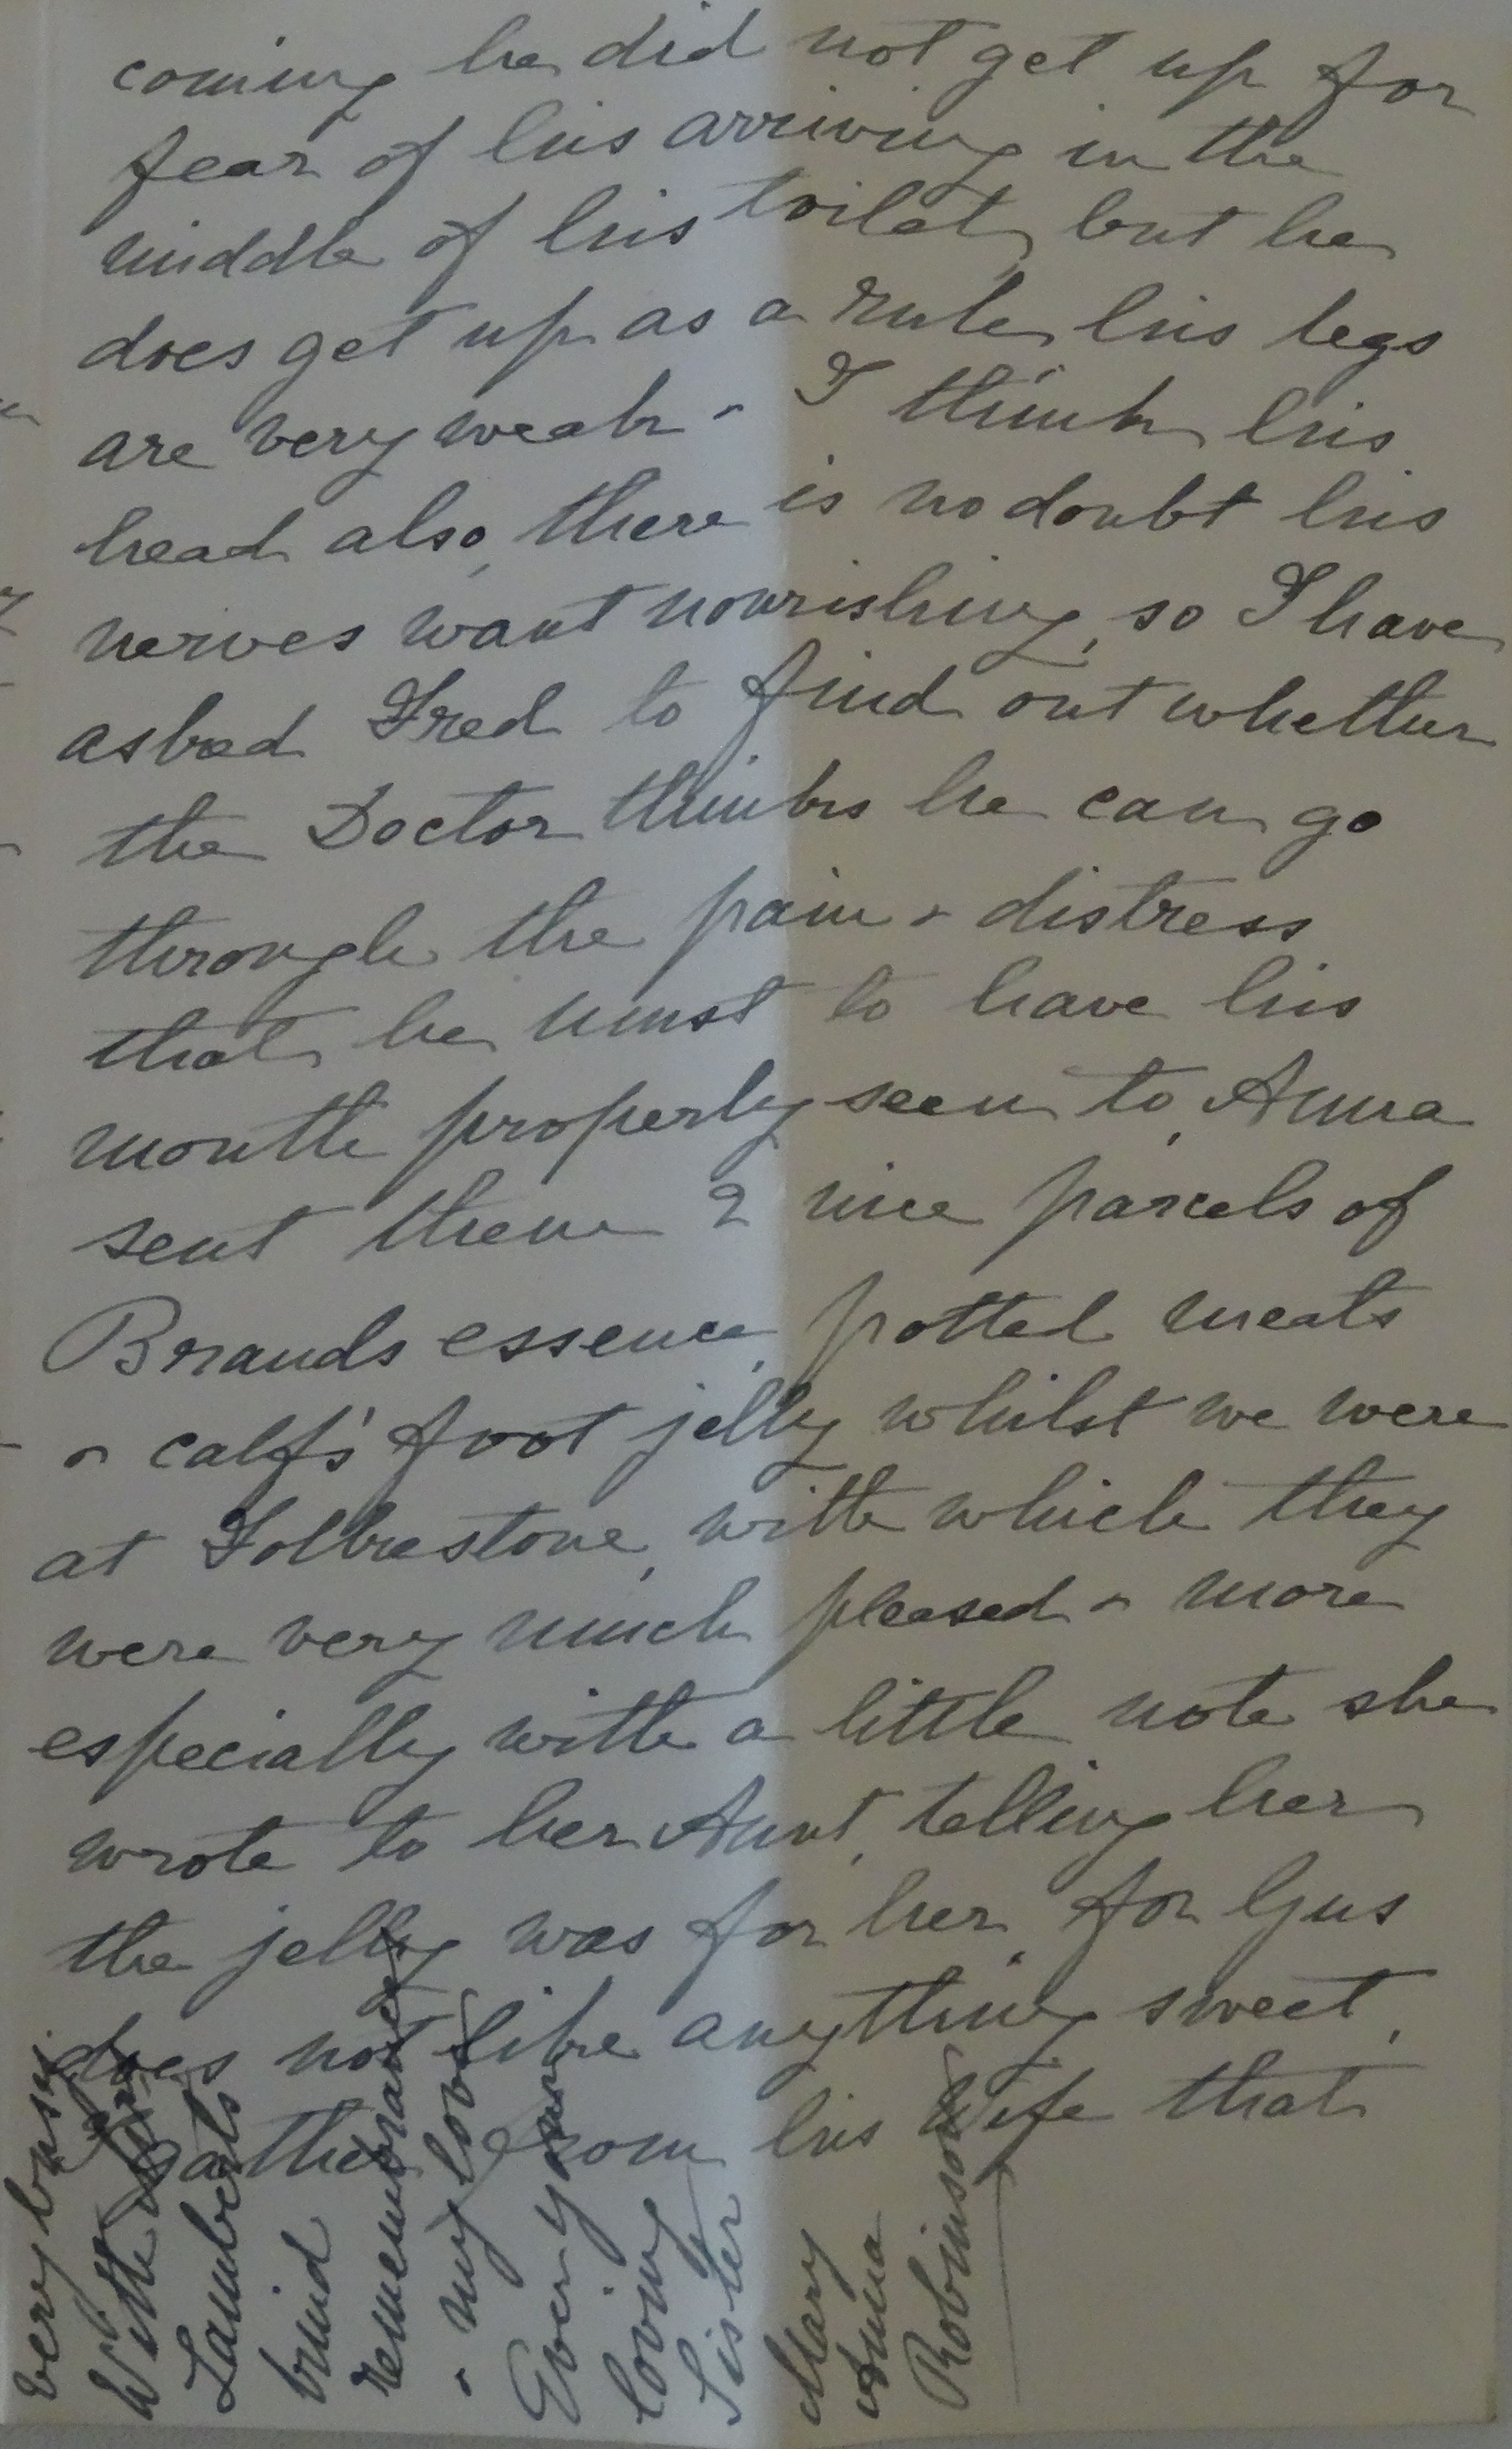 coming he did not get up for
fear of his arriving in the
middle of his toilet, but he
does get up as a rule, his legs
are very weak & I think his
head also, there is no doubt his
nerves want nourishing, so I have
asked Fred to find out whether
the Doctor thinks he can go
through the pain & distress
that he must to have his
mouth properly seen to, Anna
sent them 2 nice parcels of
Brands essence, potted meats
& calfs' foot jelly whilst we were
at Folkestone, with which they
were very much pleased & more
especially with a little note she
wrote to her Aunt, telling her
the jelly was for her, for Gus
does not like anything sweet,
I gather from his Wife that
very busy
With
Lamberts
kind
remembrances
& my love
Ever your
loving
Sister
Mary
Anna
Robinson